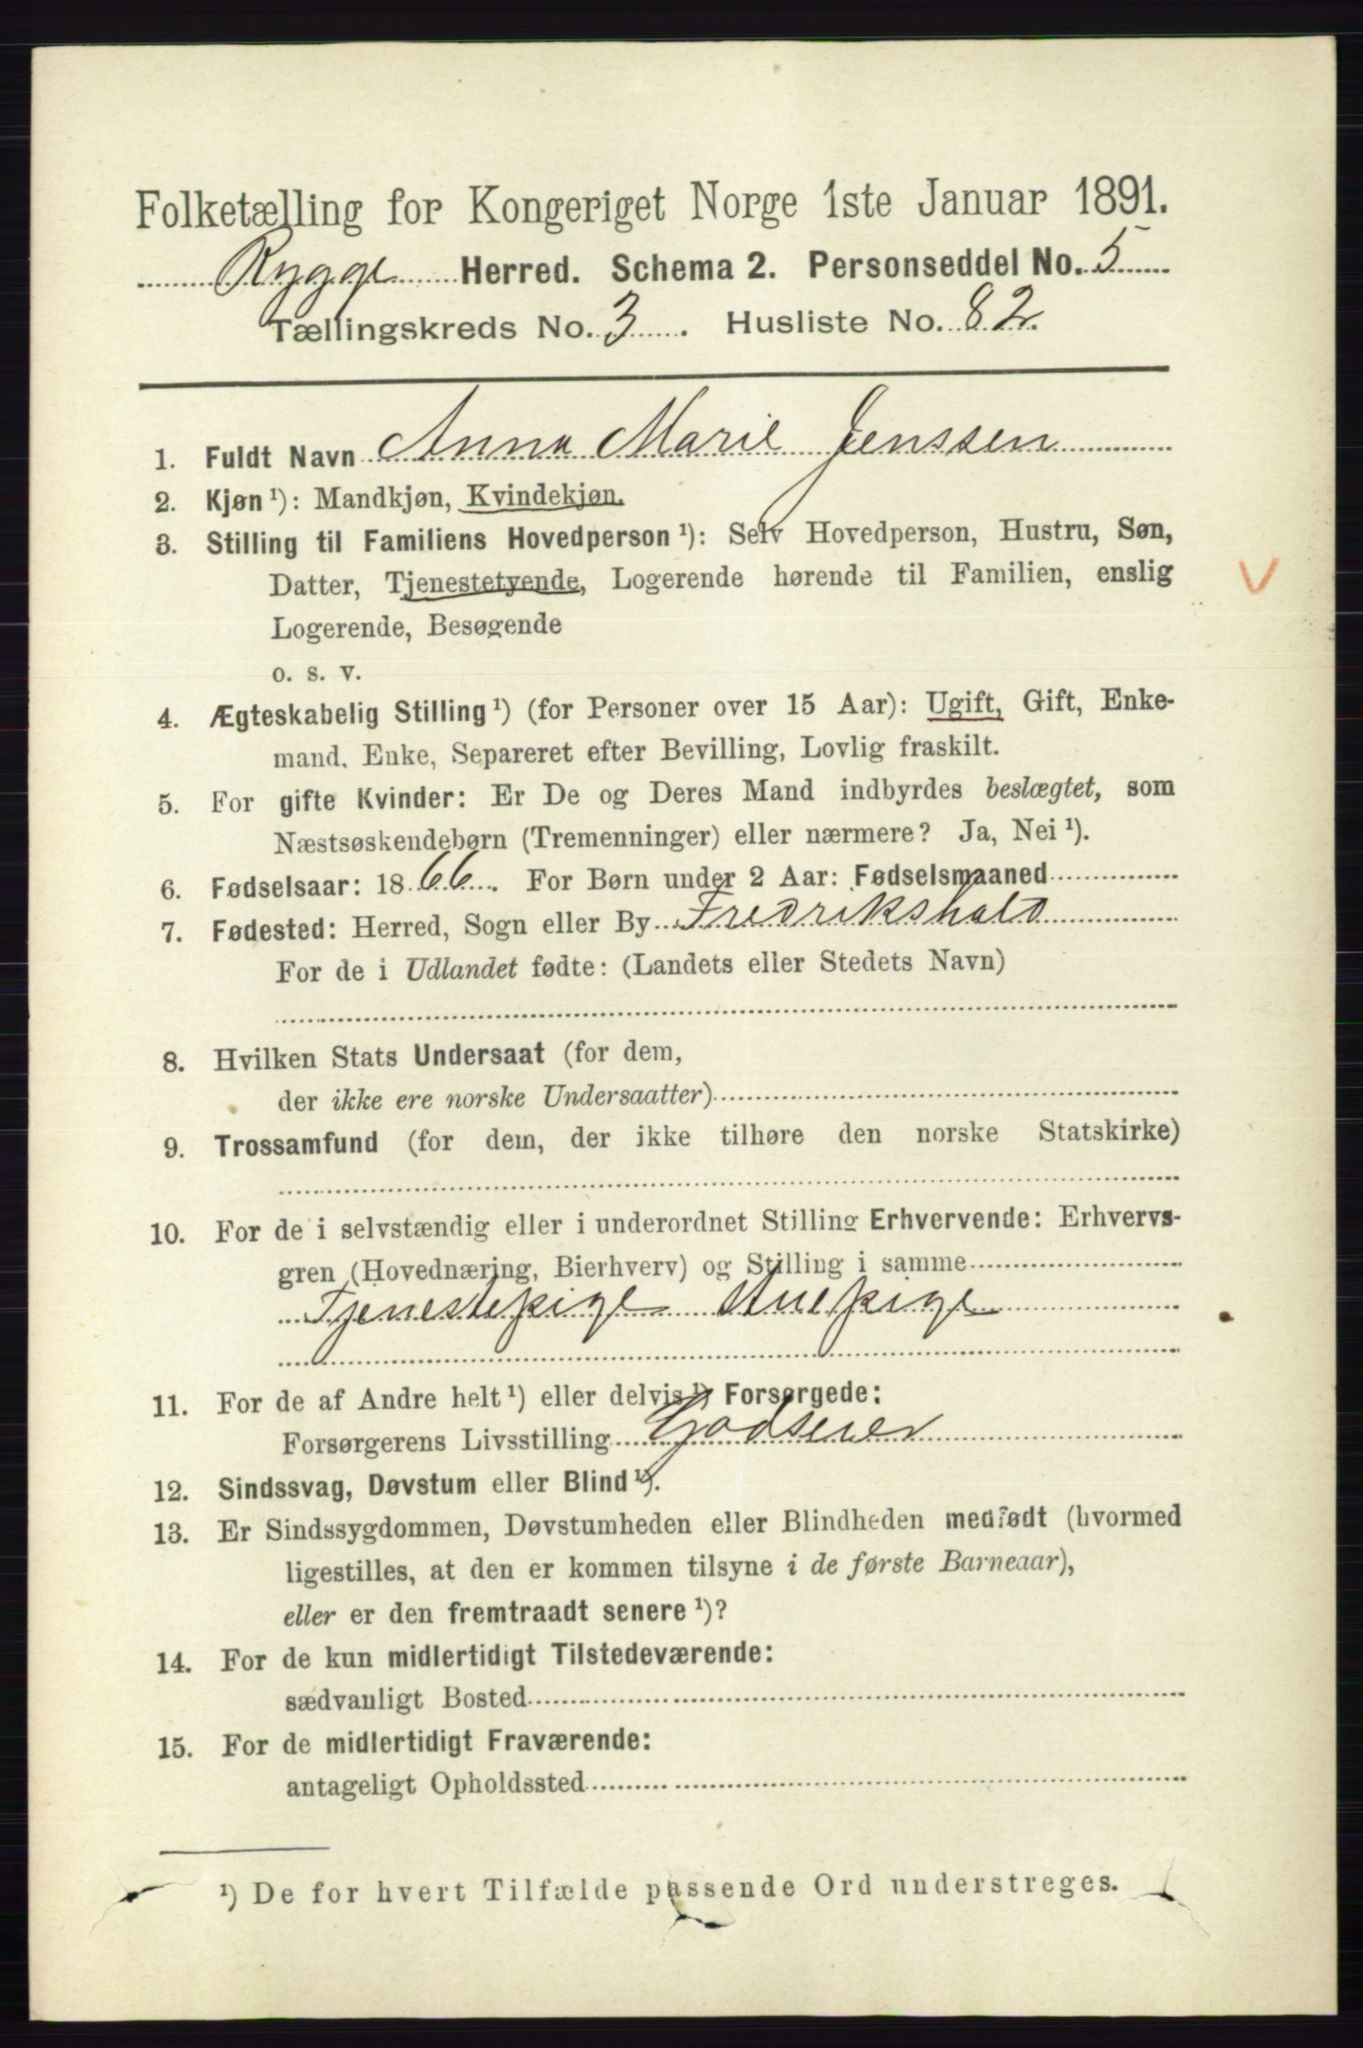 Folketælling for Kongeriget Norge 1ste Januar 1891.
Rygge Herred. Schema 2. Personseddel No. 5
Tællingskreds No. 3. Husliste No. 82.
1. Fuldt Navn Anna Marie Jenssen
2. Kjøn ¹): Mandkjøn, Kvindekjøn.
3. Stilling til Familiens Hovedperson ¹): Selv Hovedperson, Hustru, Søn,
Datter, Tjenestetyende, Logerende hørende til Familien, enslig
Logerende, Besøgende
o. s. v.
V
4. Ægteskabelig Stilling ¹) (for Personer over 15 Aar): Ugift, Gift, Enke-
mand, Enke, Separeret efter Bevilling, Lovlig fraskilt.
5. For gifte Kvinder: Er De og Deres Mand indbyrdes beslægtet, som
Næstsøskendebørn (Tremenninger) eller nærmere? Ja, Nei ¹).
6. Fødselsaar: 1866. For Børn under 2 Aar: Fødselsmaaned
7. Fødested: Herred, Sogn eller By Fredrikshald
For de i Udlandet fødte: (Landets eller Stedets Navn)
8. Hvilken Stats Undersaat (for dem,
der ikke ere norske Undersaatter)
9. Trossamfund (for dem, der ikke tilhøre den norske Statskirke)
10. For de i selvstændig eller i underordnet Stilling Erhvervende: Erhvervs-
gren (Hovednæring, Bierhverv) og Stilling i samme
Tjenestepige Stuepige
11. For de af Andre helt ¹) eller delvis ¹) Forsørgede:
Forsørgerens Livsstilling Godseier
12. Sindssvag, Døvstum eller Blind ¹).
13. Er Sindssygdommen, Døvstumheden eller Blindheden medfødt (hvormed
ligestilles, at den er kommen tilsyne i de første Barneaar),
eller er den fremtraadt senere ¹)?
14. For de kun midlertidigt Tilstedeværende:
sædvanligt Bosted
15. For de midlertidigt Fraværende:
antageligt Opholdssted
¹) De for hvert Tilfælde passende Ord understreges.